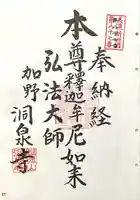 奉納経
本尊釋迦牟尼如来
弘法大師
加野
洞泉寺